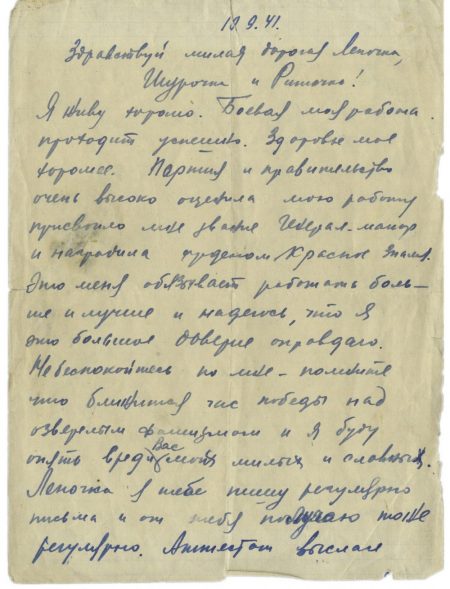 13.9.41.
Здравствуй милая дорогая Леночка,
Шурочка и Риточка!
Я живу хорошо. Боевая моя работа
проходит успешно. Здоровье мое
хорошее. Партия и правительство
очень высоко оценила мою работу
присвоило мне звание Генерал-майор
и наградила орденом Красное Знамя.
Это меня обязывает работать боль-
ше и лучше и надеюсь, что я
это большое доверие оправдаю.
Не беспокойтесь по мне - помните
что близится час победы над
озверелым фашизмом и я буду
опять среди Вас моих милых и славных.
Леночка я тебе пишу регулярно
письма и от тебя получаю тоже
регулярно. Аттестат выслал